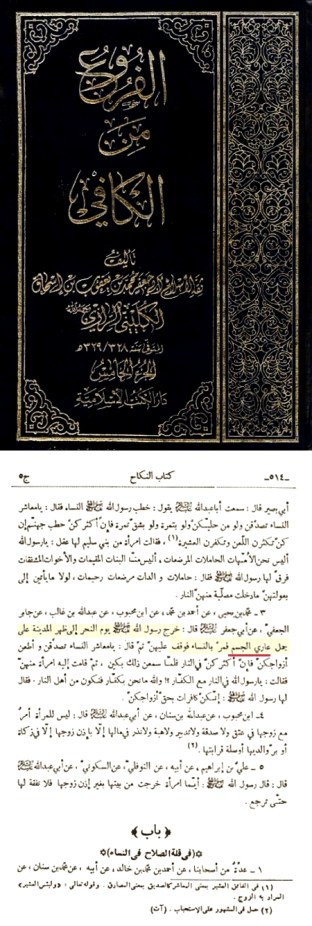 الفروع
من
الكافي
تأليف
ثقة الإسلام أبي جعفر محمد بن يعقوب بن إسحاق
الكليني الرازي
المتوفى سنة ٣٢٨/٣٢٩ه
الجزء الخامس
دار الكتب الإسلامية
-٥١٤- كتاب النكاح ج٥
أبي بصير قال: سمعت أبا عبدالله يقول: خطب رسول الله النساء فقال: يا معاشر
النساء تصدقن ولو من حليكن ولو بتمرة ولو بشق تمرة فإن أكثركن حطب جهنم إن
كن تكثرن اللعن وتكفرن العشيرة(١)، فقالت امرأة من بني سليم لها عقل: يا رسول الله
أليس نحن الأمهات الحاملات المرضعات، أليس منا البنات المقيمات والأخوات المشفقات
فرق لها رسول الله فقال: حاملات والدات مرضعات رحيمات، لولا ما يأتين إلى
بعولتهن ما دخلت مصلية منهن النار.
٣ - محمد بن يحيى، عن أحمد بن محمد، عن ابن محبوب، عن عبدالله بن غالب، عن جابر
الجعفي، عن أبي جعفر قال: خرج رسول الله يوم النحر إلى ظهر المدينة على
جمل عاري الجسم فمر بالنساء فوقف عليهن ثم قال: يا معاشر النساء تصدقن وأطعن
أزواجكن فإن أكثركن في النار فلما سمعن ذلك بكين، ثم قامت إليه امرأة منهن
فقالت: يا رسول الله في النار مع الكفار؟! والله ما نحن بكفار فنكون من أهل النار، فقال
لها رسول الله: إنكن كافرات بحق أزواجكن.
٤ - ابن محبوب، عن عبدالله بن سنان، عن أبي عبدالله قال: ليس للمرأة أمر
مع زوجها في عتق ولا صدقة ولا تدبير ولا هبة ولا نذر في مالها إلا بإذن زوجها إلا في زكاة
أو بر والديها أو صلة قرابتها.(٢)
٥ - علي بن إبراهيم، عن أبيه، عن النوفلي، عن السكوني، عن أبي عبدالله
قال: قال رسول الله: أيما امرأة خرجت من بيتها بغير إذن زوجها فلا نفقة لها
حتى ترجع.
﴿باب﴾
✡(في قلة الصلاح في النساء)✡
١ - عدة من أصحابنا، عن أحمد بن محمد بن خالد، عن أبيه، عن محمد بن سنان، عن
(١) في القائق العشير بمعنى المعاشر كالصديق بمعنى المصادق. وقوله تعالى: «ولبئس العشير»
المراد به الزوج.
(٢) حمل في المشهور على الاستحباب. (آت)